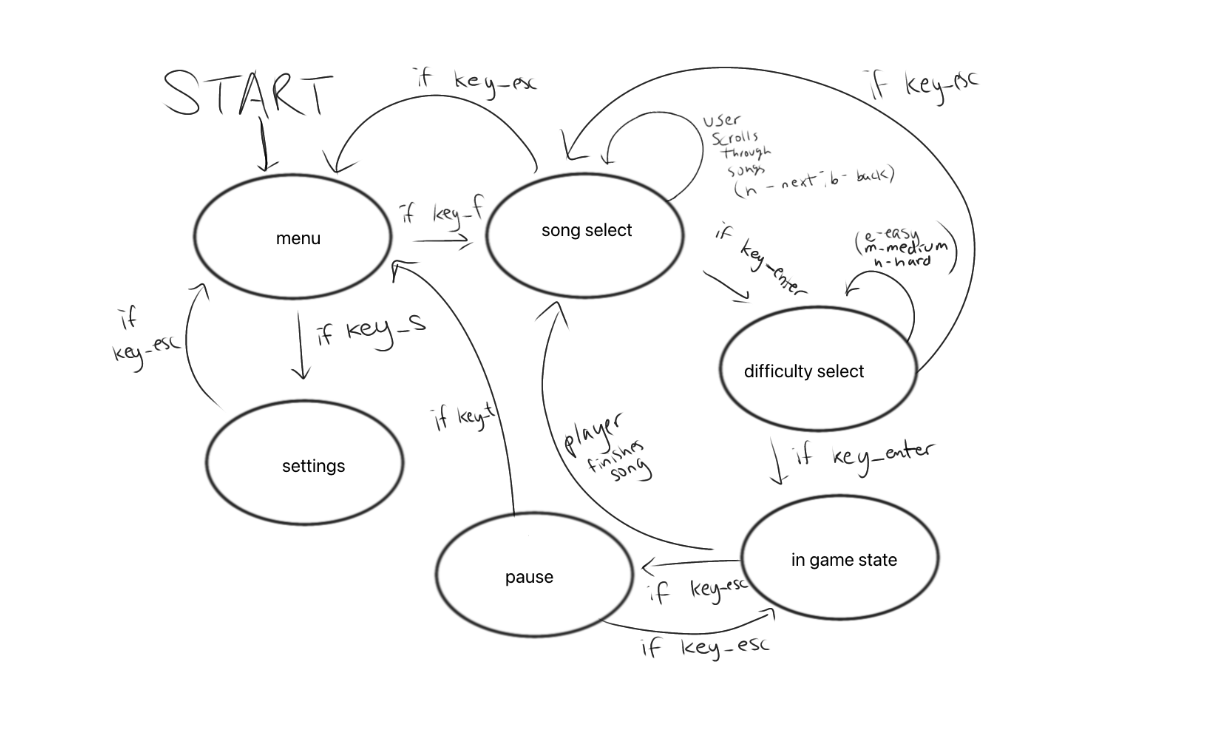 START
if key_esc
if key_esc
user
scrolls
through
songs
(n - next; b - back)
menu
if key_f
song select
if key_enter
(e-easy
m-medium
h-hard)
if
key_esc
if key_s
difficulty select
if key_t
player
finishes
song
if key_enter
settings
pause
in game state
if key_esc
if key_esc